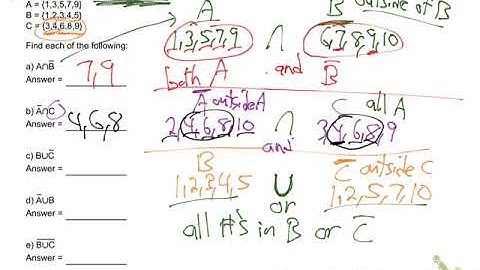 A = {1,3,5,7,9}
B = {1,2,3,4,5}
C = {3,4,6,8,9}
Find each of the following:
a) A∩B̅
Answer = 7,9
b) A̅∩C
Answer = 4,6,8
c) B∪C̅
Answer =
d) A̅∪B
Answer =
e) B̅∪̅C̅
Answer =
A B̅ outside of B
1,3,5,7,9 ∩ 6,7,8,9,10
both A and B̅
A̅ outside A C all A
2,4,6,8,10 ∩ 3,4,6,8,9
and
B C̅ outside C
1,2,3,4,5 ∪ 1,2,5,7,10
or
all #'s in B or C̅